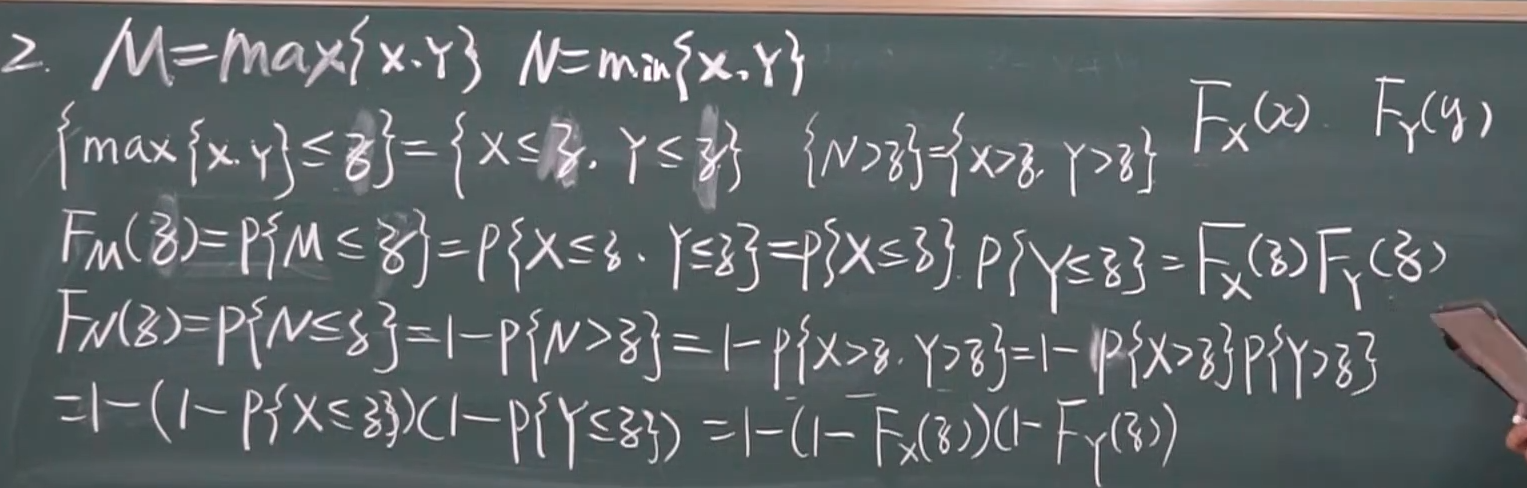 2. M=max{X.Y} N=min{X.Y}
F_X(x). F_Y(y)
{max{X.Y}≤z}={X≤z. Y≤z} {N>z}={X>z. Y>z}
F_M(z)=P{M≤z}=P{X≤z. Y≤z}=P{X≤z}.P{Y≤z}=F_X(z)F_Y(z)
F_N(z)=P{N≤z}=1-P{N>z}=1-P{X>z. Y>z}=1-P{X>z}P{Y>z}
=1-(1-P{X≤z})(1-P{Y≤z})=1-(1-F_X(z))(1-F_Y(z))